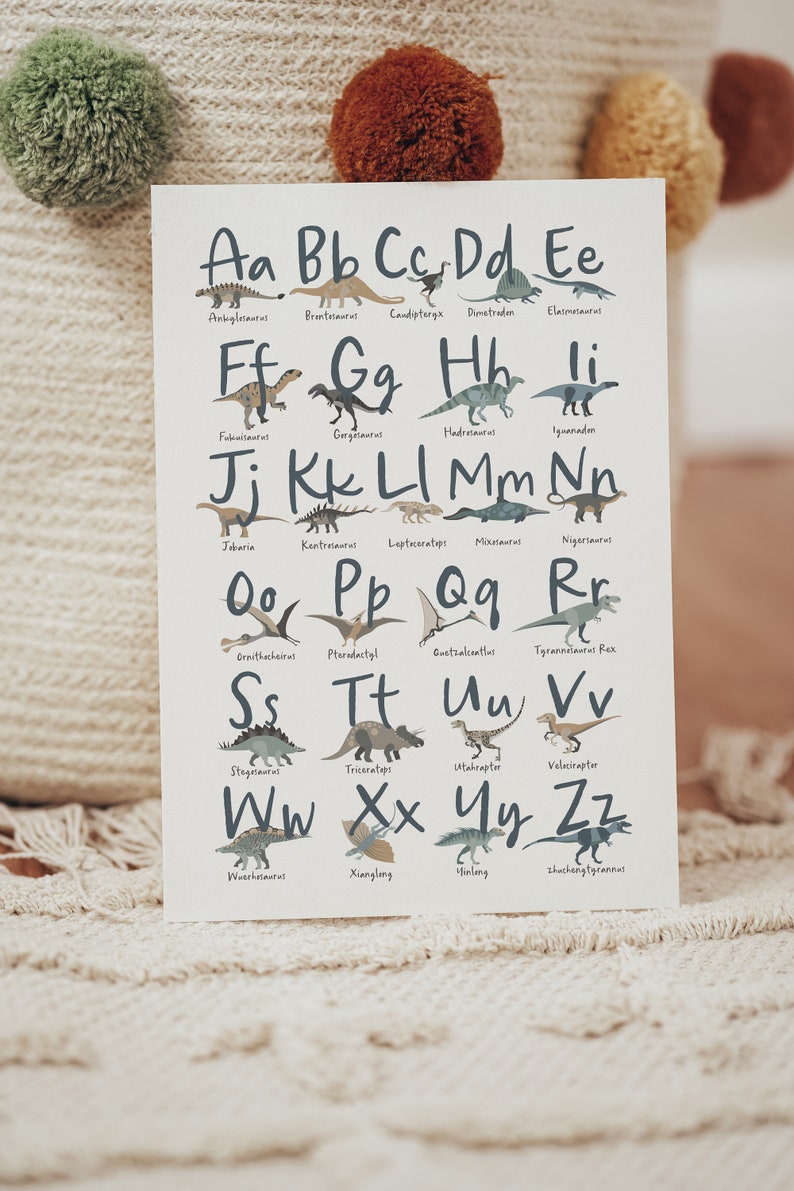 Aa Bb Cc Dd Ee
Ankylosaurus Brontosaurus Caudipteryx Dimetrodon Elasmosaurus
Ff Gg Hh Ii
Fukuisaurus Gorgosaurus Hadrosaurus Iguanadon
Jj Kk Ll Mm Nn
Jobaria Kentrosaurus Leptoceratops Mixosaurus Nigersaurus
Oo Pp Qq Rr
Ornithocheirus Pterodactyl Quetzalcoatlus Tyrannosaurus Rex
Ss Tt Uu Vv
Stegosaurus Triceratops Utahraptor Velociraptor
Ww Xx Yy Zz
Wuerhosaurus Xianglong Yinlong Zhuchengtyrannus